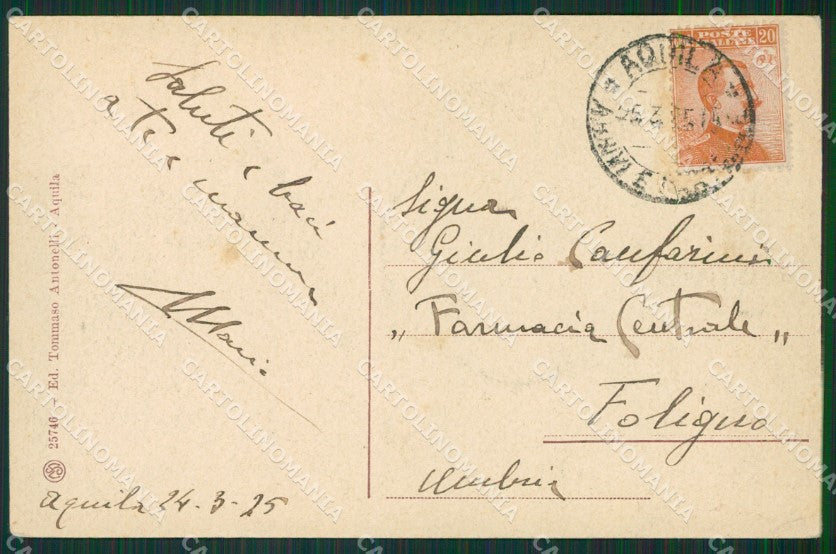 Saluti e baci
a te e mamma
Mario
Aquila 24-3-25
25746 - Ed. Tommaso Antonelli, Aquila
POSTE
ITALIANE
20
AQUILA
Signa
Giulio
„Farmacia Centrale„
Foligno
Umbria
CARTOLINOMANIA